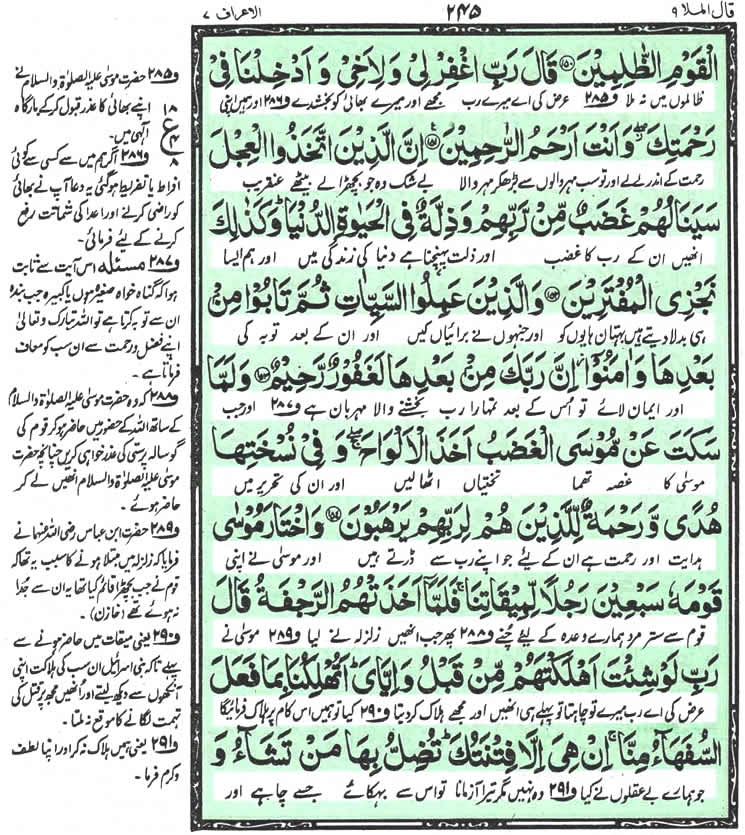 قال الملا ٩
٢٤٥
الاعراف ٧
الْقَوْمِ الظّٰلِمِيْنَ ﴿۱۵۰﴾ قَالَ رَبِّ اغْفِرْ لِيْ وَلِاَخِيْ وَ اَدْخِلْنَا فِيْ
ظالموں میں نہ ملا و۲۸۵ عرض کی اے میرے رب مجھے اور میرے بھائی کو بخشدے و۲۸۶ اور ہمیں اپنی
رَحْمَتِكَ ۖ وَ اَنْتَ اَرْحَمُ الرّٰحِمِيْنَ ﴿۱۵۱﴾ اِنَّ الَّذِيْنَ اتَّخَذُوا الْعِجْلَ
رحمت کے اندر لے لے اور تو سب مہر والوں سے بڑھکر مہر والا بے شک وہ جو بچھڑا لے بیٹھے عنقریب
سَيَنَالُهُمْ غَضَبٌ مِّنْ رَّبِّهِمْ وَ ذِلَّةٌ فِي الْحَيٰوةِ الدُّنْيَا ۚ وَ كَذٰلِكَ
انھیں ان کے رب کا غضب اور ذلت پہنچنا ہے دنیا کی زندگی میں اور ہم ایسا
نَجْزِي الْمُفْتَرِيْنَ ﴿۱۵۲﴾ وَ الَّذِيْنَ عَمِلُوا السَّيِّاٰتِ ثُمَّ تَابُوْا مِنْۢ
ہی بدلا دیتے ہیں بہتان ہایوں کو اور جنہوں نے برائیاں کیں اور ان کے بعد توبہ کی
بَعْدِهَا وَ اٰمَنُوْۤا ۖ اِنَّ رَبَّكَ مِنْۢ بَعْدِهَا لَغَفُوْرٌ رَّحِيْمٌ ﴿۱۵۳﴾ وَ لَمَّا
اور ایمان لائے تو اس کے بعد تمہارا رب بخشنے والا مہربان ہے و۲۸۷ اور جب
سَكَتَ عَنْ مُّوْسَى الْغَضَبُ اَخَذَ الْاَلْوَاحَ ۖ وَ فِيْ نُسْخَتِهَا
موسٰی کا غصہ تھما تختیاں اٹھا لیں اور ان کی تحریر میں
هُدًى وَّ رَحْمَةٌ لِّلَّذِيْنَ هُمْ لِرَبِّهِمْ يَرْهَبُوْنَ ﴿۱۵۴﴾ وَ اخْتَارَ مُوْسٰى
ہدایت اور رحمت ہے ان کے لیے جو اپنے رب سے ڈرتے ہیں اور موسٰی نے اپنی
قَوْمَهٗ سَبْعِيْنَ رَجُلًا لِّمِيْقَاتِنَا ۚ فَلَمَّاۤ اَخَذَتْهُمُ الرَّجْفَةُ قَالَ
قوم سے ستر مرد ہمارے وعدہ کے لیے چنے و۲۸۸ پھر جب انھیں زلزلہ نے لیا و۲۸۹ موسٰی نے
رَبِّ لَوْ شِئْتَ اَهْلَكْتَهُمْ مِّنْ قَبْلُ وَ اِيَّايَ ؕ اَتُهْلِكُنَا بِمَا فَعَلَ
عرض کی اے رب میرے تو چاہتا تو پہلے ہی انھیں اور مجھے ہلاک کر دیتا و۲۹۰ کیا تو ہمیں اس کام پر ہلاک فرمائیگا
السُّفَهَآءُ مِنَّا ۚ اِنْ هِيَ اِلَّا فِتْنَتُكَ ؕ تُضِلُّ بِهَا مَنْ تَشَآءُ وَ
جو ہمارے بے عقلوں نے کیا و۲۹۱ وہ نہیں مگر تیرا آزمانا تو اس سے بہکائے جسے چاہے اور
و۲۸۵ حضرت موسٰی علیہ الصلوٰۃ والسلام نے
اپنے بھائی کا عذر قبول کر کے بارگاہ
الٰہی میں۔
١٨
ع
۴
٨
و۲۸۶ اگر ہم میں سے کسی سے کوئی
افراط یا تفریط ہو گئی یہ دعا آپ نے بھائی
کو راضی کرنے اور اعدا کی شماتت رفع
کرنے کے لیے فرمائی۔
و۲۸۷ مسئلہ اس آیت سے ثابت
ہوا کہ گناہ خواہ صغیرہ ہوں یا کبیرہ جب بندہ
ان سے توبہ کرتا ہے تو اللہ تبارک وتعالیٰ
اپنے فضل ورحمت سے ان سب کو معاف
فرماتا ہے۔
و۲۸۸ کہ وہ حضرت موسٰی علیہ الصلوٰۃ والسلام
کے ساتھ اللہ کے حضور میں حاضر ہو کر قوم کی
گوسالہ پرستی کی عذر خواہی کریں چنانچہ حضرت
موسٰی علیہ الصلوٰۃ والسلام انھیں لے کر
حاضر ہوئے۔
و۲۸۹ حضرت ابن عباس رضی اللہ عنہما نے
فرمایا کہ زلزلہ میں مبتلا ہونے کا سبب یہ تھا کہ
قوم نے جب بچھڑا قائم کیا تھا یہ ان سے جدا
نہ ہوئے تھے (خازن)۔
و۲۹۰ یعنی میقات میں حاضر ہونے سے
پہلے تاکہ بنی اسرائیل ان سب کی ہلاکت اپنی
آنکھوں سے دیکھ لیتے اور انھیں مجھ پر قتل کی
تہمت لگانے کا موقع نہ ملتا۔
و۲۹۱ یعنی ہمیں ہلاک نہ کر اور اپنا لطف
وکرم فرما۔